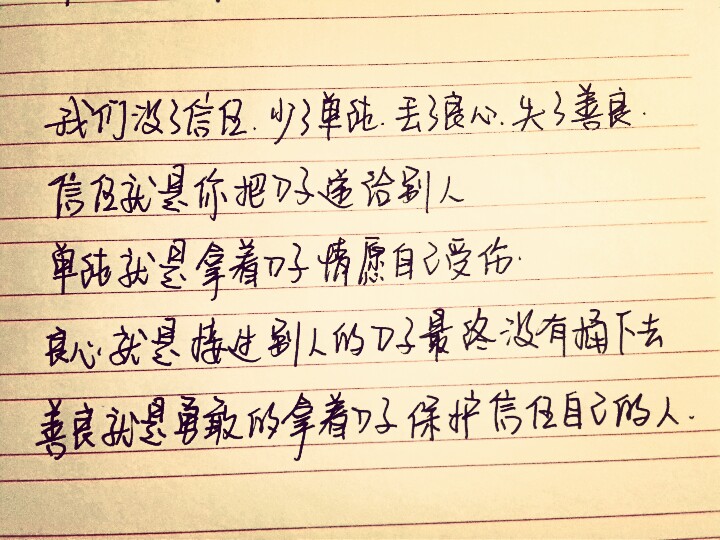 我们没了信任.少了单纯.丢了良心.失了善良.
信任就是你把刀子递给别人
单纯就是拿着刀子情愿自己受伤.
良心就是接过别人的刀子最终没有捅下去
善良就是勇敢的拿着刀子保护信任自己的人.